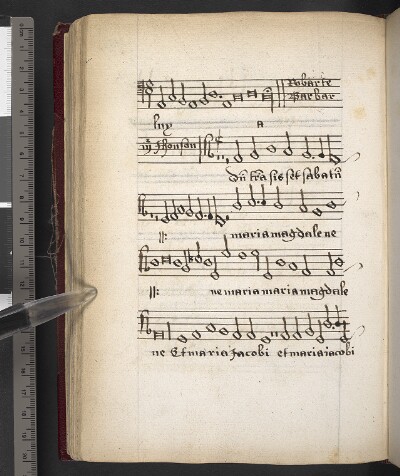 Robarte
Barbar
luy a
iij Thonson
Dū trāsisset sabatū
maria magdale ne
ne maria maria magdale
ne Et maria Jacobi et maria iacobi